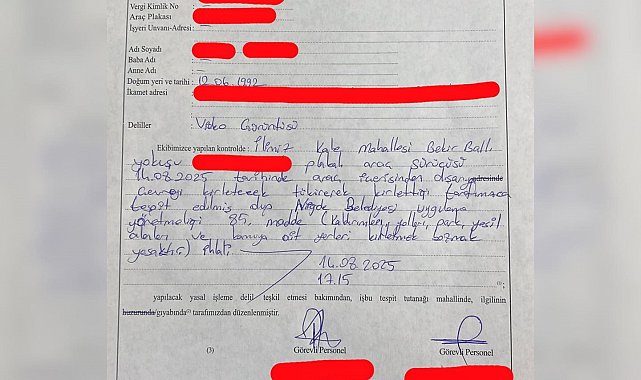 Vergi Kimlik No :
Araç Plakası :
İşyeri Unvanı-Adresi:
Adı Soyadı :
Baba Adı :
Anne Adı :
Doğum yeri ve tarihi : 12.06.1992
İkamet adresi :
Deliller : Video Görüntüsü
Ekibimizce yapılan kontrolde : İlimiz Kale Mahallesi Bekir Ballı
yokuşu plakalı araç sürücüsü
14.08.2025 tarihinde araç içerisinden dışarıya adresinde
Çevreyi kirleterek tükürerek kirlettiği tarafımızca
tespit edilmiş olup Niğde Belediyesi uygulama
yönetmeliği 85. madde (Kaldırımları, yolları, park, yeşil
alanları ve kamuya ait yerleri kirletmek bozmak
yasaktır.) ihlali
14.08.2025
17.15
yapılacak yasal işleme delil teşkil etmesi bakımından, işbu tespit tutanağı mahallinde, ilgilinin
huzurunda/gıyabında tarafımızdan düzenlenmiştir.
(3) Görevli Personel Görevli Personel